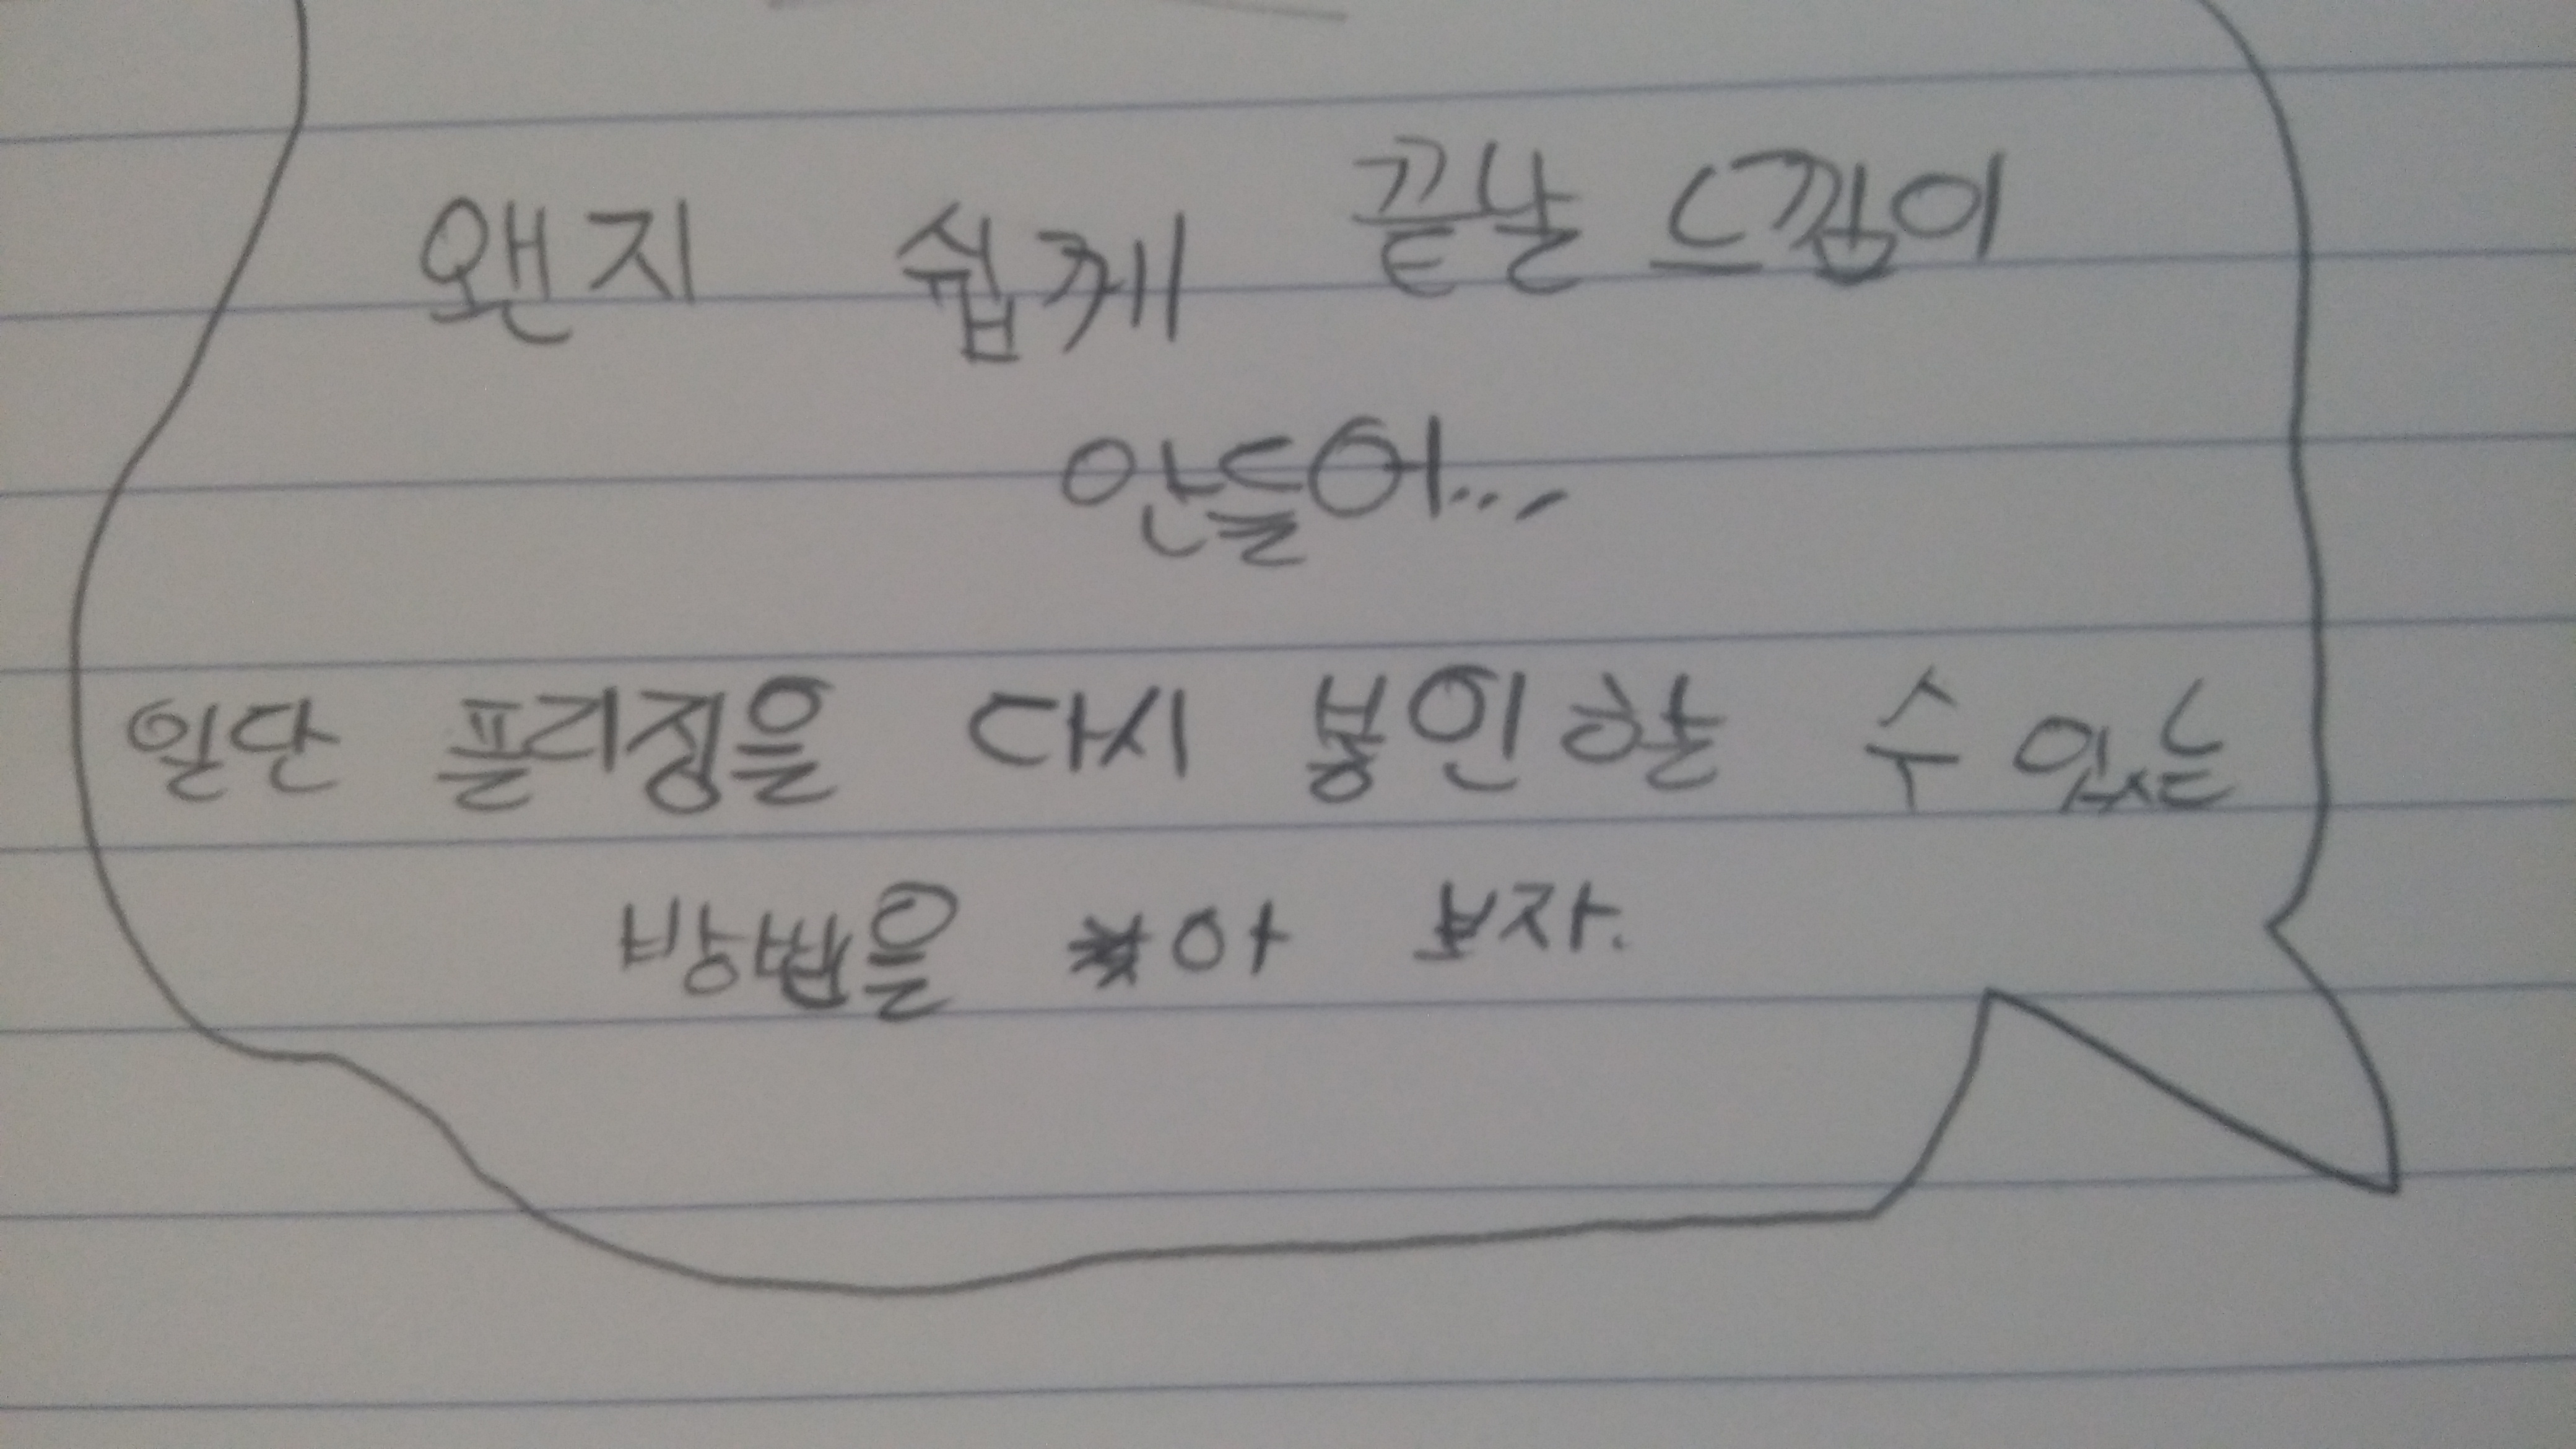 왠지 쉽께 끝날 느낌이
안들어...
일단 플리징을 다시 봉인할 수 있는
방법을 찾아 보자.